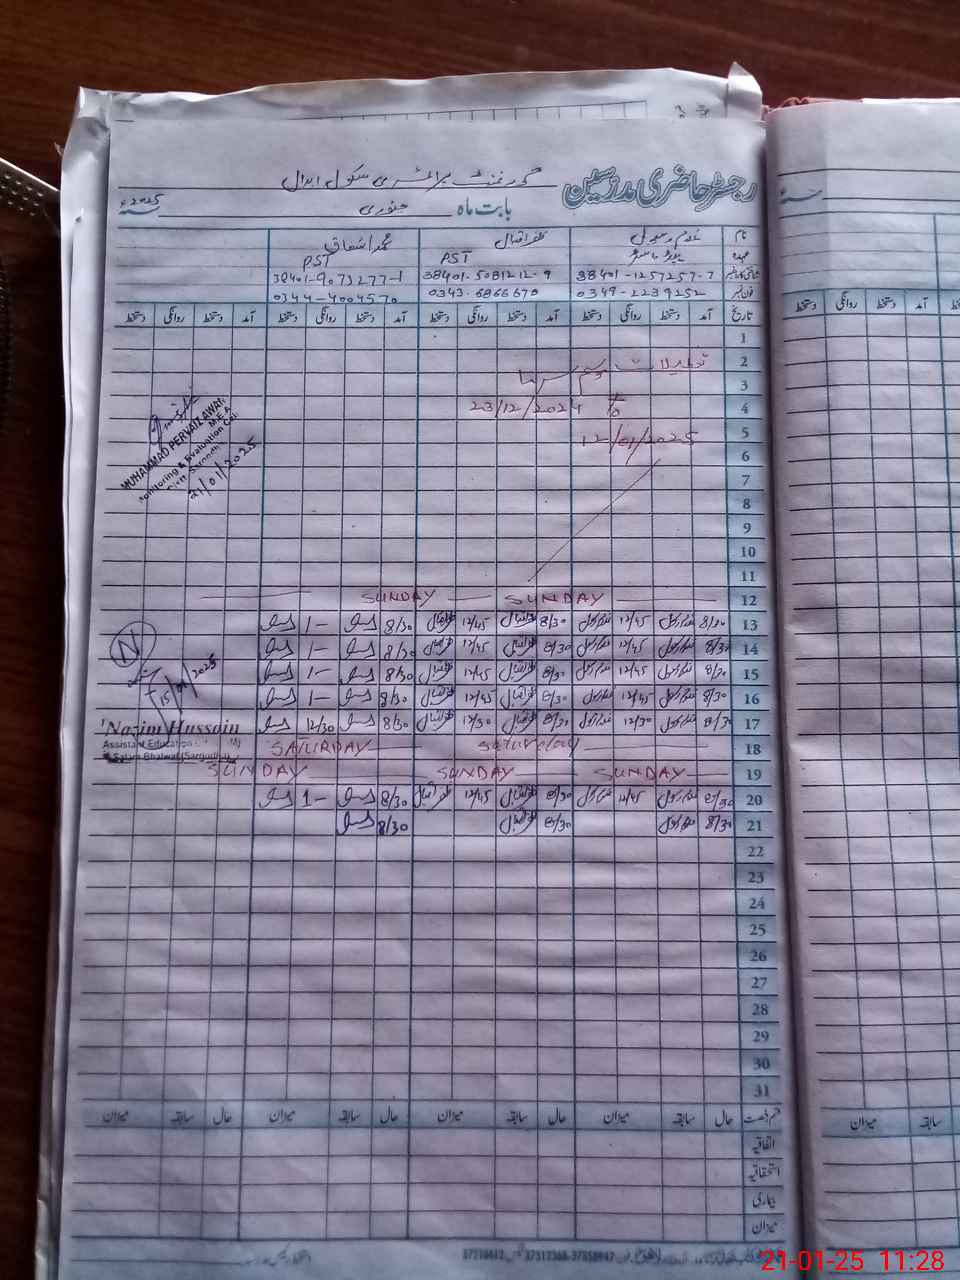 رجسٹر حاضری مدرسین گورنمنٹ پرائمری سکول
بابت ماہ جنوری سنہ 2025ء
نام غلام رسول ظفر اقبال محمد اشفاق
عہدہ PST PST
شناختی کارڈ نمبر 38401-1257257-7 38401-5081212-9 38401-9073277-1
فون نمبر 0349-2239252 0343-6866670 0344-4004570
تاریخ آمد دستخط روانگی دستخط آمد دستخط روانگی دستخط آمد دستخط روانگی دستخط آمد دستخط روانگی دستخط
1
2 تعطیلات موسم سرما
3
4 23/12/2024 To
5 12/01/2025
6
7
8
9
10
11
12 SUNDAY SUNDAY
13 8/30 12/45 8/30 ظفر اقبال 12/45 ظفر اقبال 8/30 1-
14 8/30 12/45 8/30 ظفر اقبال 12/45 ظفر اقبال 8/30 1-
15 8/30 12/45 8/30 ظفر اقبال 12/45 ظفر اقبال 8/30 1-
16 8/30 12/45 8/30 ظفر اقبال 12/45 ظفر اقبال 8/30 1-
17 8/30 12/30 8/30 ظفر اقبال 12/30 ظفر اقبال 8/30 12/30
18 Saturday SATURDAY
19 SUNDAY SUNDAY SUNDAY
20 8/30 12/45 8/30 ظفر اقبال 12/45 ظفر اقبال 8/30 1-
21 8/30 8/30 ظفر اقبال 8/30
22
23
24
25
26
27
28
29
30
31
قسم رخصت حال سابقہ میزان حال سابقہ میزان حال سابقہ میزان حال سابقہ میزان
اتفاقیہ
استحقاقیہ
بیماری
میزان
MUHAMMAD PERVAIZ AWAN
M.E.A
Monitoring & Evaluation Cell
21/01/2025
N
15/01/2025
Nazim Hussain
Assistant Education
Bhalwal (Sargodha)
سنہ
دستخط روانگی دستخط آمد
میزان سابقہ
21-01-25 11:28